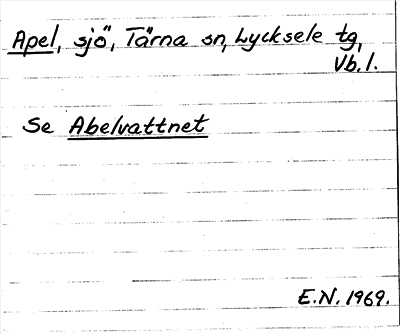 Apel, sjö, Tärna sn, Lycksele tg,
Vb.l.
Se Abelvattnet
E.N. 1969.